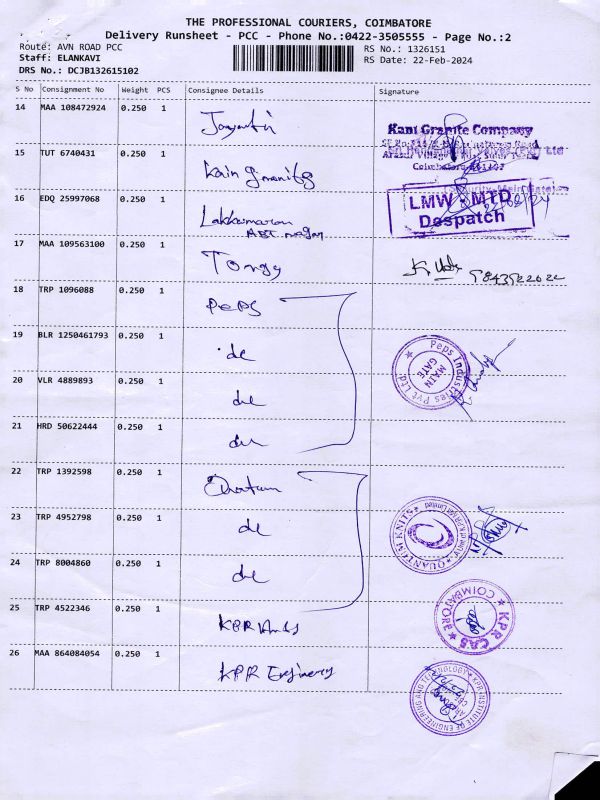 THE PROFESSIONAL COURIERS, COIMBATORE
Delivery Runsheet - PCC - Phone No.:0422-3505555 - Page No.:2
Route: AVN ROAD PCC
RS No.: 1326151
Staff: ELANKAVI
RS Date: 22-Feb-2024
DRS No.: DCJB132615102
S No Consignment No Weight PCS Consignee Details Signature
14 MAA 108472924 0.250 1
Kani Granite Company
15 TUT 6740431 0.250 1
Coimbatore
16 EDQ 25997068 0.250 1 Lakkumaran
LMW - MTD
Despatch
17 MAA 109563100 0.250 1 Tongy
18 TRP 1096088 0.250 1 PePS
19 BLR 1250461793 0.250 1 do
Peps Industries Pvt Ltd
MAIN GATE
20 VLR 4889893 0.250 1 do
21 HRD 50622444 0.250 1 do
22 TRP 1392598 0.250 1
23 TRP 4952798 0.250 1 do
QUANTUM KNITS
24 TRP 8004860 0.250 1 do
25 TRP 4522346 0.250 1 KPR
KPR CAS COIMBATORE
26 MAA 864084054 0.250 1 KPR Enginery
KPR INSTITUTE OF ENGINEERING AND TECHNOLOGY